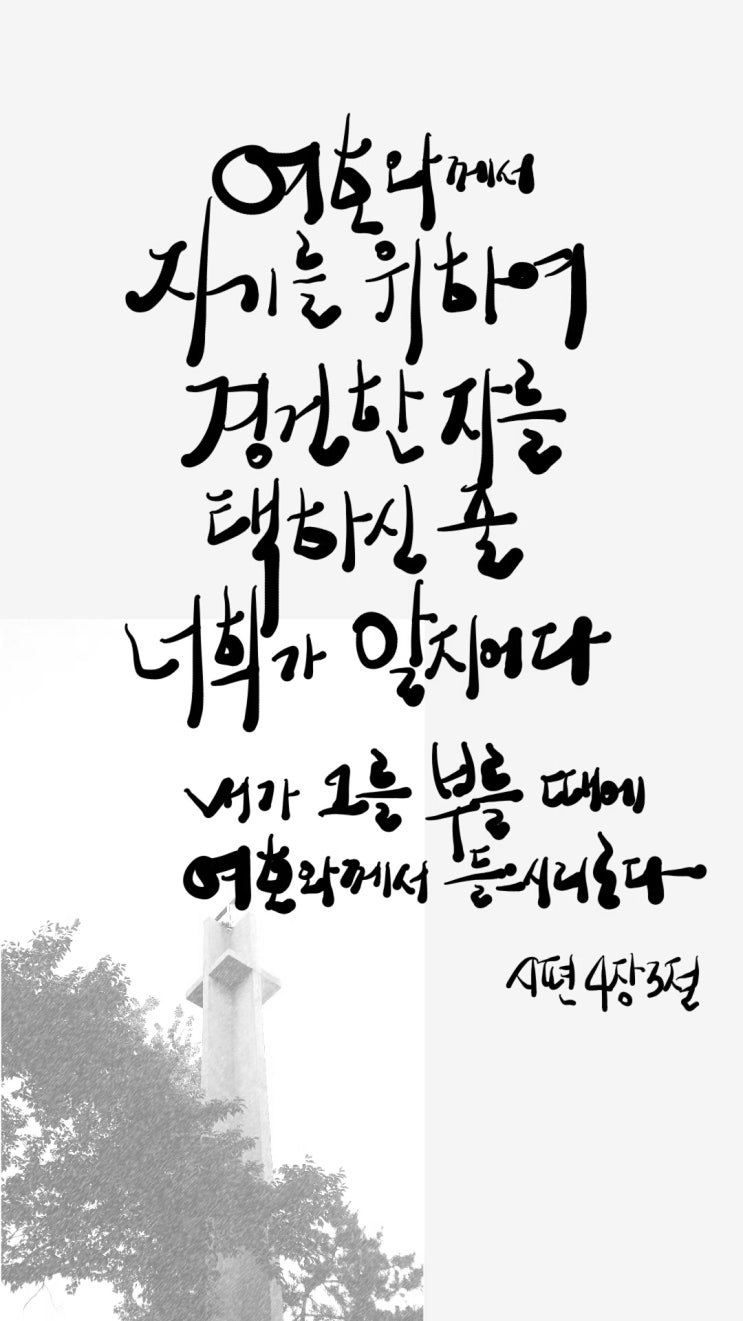 여호와께서
자기를 위하여
경건한 자를
택하신 줄
너희가 알지어다
내가 그를 부를 때에
여호와께서 들으시리로다
시편 4장 3절